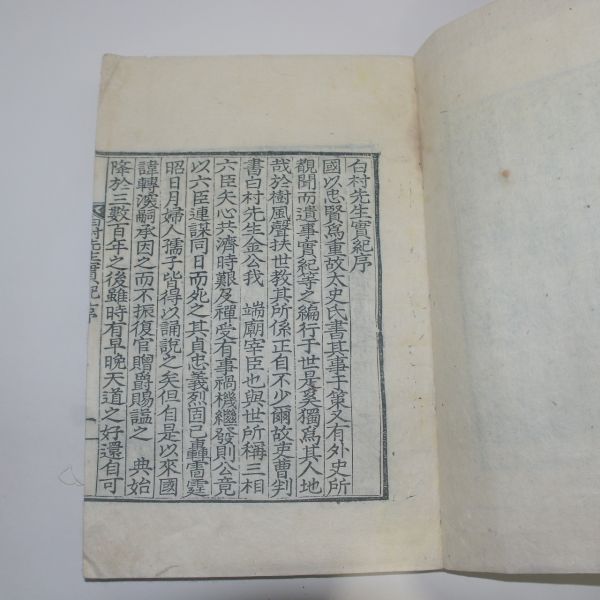 白村先生實紀序
國以忠賢爲重故太史氏書其事于策又有外史所
觀聞而遺事實紀等之編行于世是奚獨爲其人地
哉於樹風聲扶世教其所係正自不少爾故吏曹判
書白村先生金公我 端廟宰臣也與世所稱三相
六臣夫心共濟時艱及禪受有事禍機繼發則公竟
以六臣連謀同日而死之其貞忠義烈固已轟雷霆
昭日月婦人孺子皆得以誦說之矣但自是以來國
諱轉深嗣承因之而不振復官贈爵賜謚之 典始
降於三數百年之後雖時有早晩天道之好還自可
村先生實紀 序